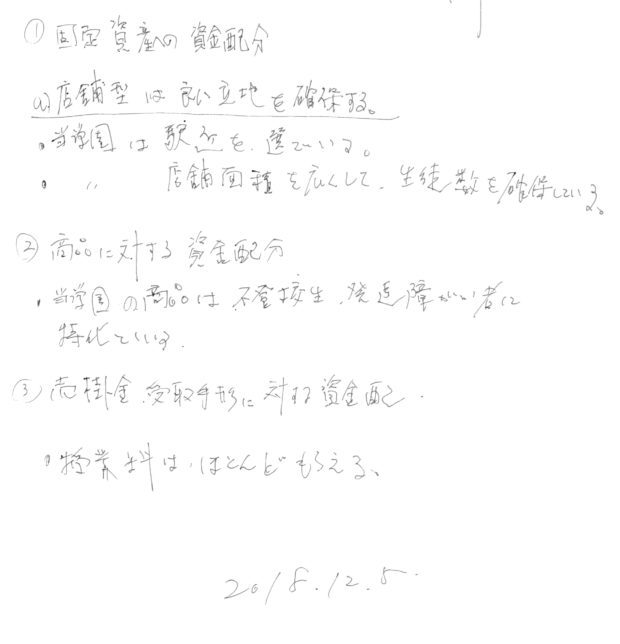 ① 固定資産への資金配分
a) 店舗型は良い立地を確保する。
・当学園は駅近を選でいる。
・ 〃 店舗面積を広くして、生徒数を確保している。
② 商品に対する資金配分
・当学園の商品は、不登校生、発達障がい者に
特化している.
③ 売掛金、受取手形に対する資金配.
・授業料は、ほとんどもらえる、
2018.12.5.